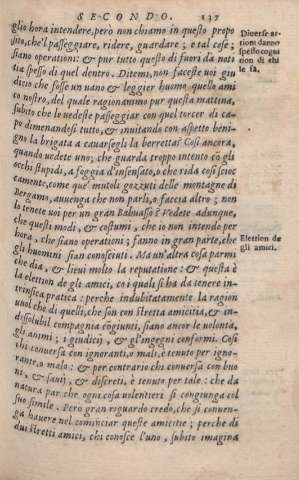 SECONDO. 137
glio hora intendere, però non chiamo in questo propo
sito, che'l passeggiare, ridere, guardare; e tal cose;
siano operationi: & pur tutto questo di fuori da noti
tia spesso di quel dentro. Ditemi, non faceste voi giu
dicio che fosse un vano & leggier huomo, quello ami
co nostro, del quale ragionammo pur questa mattina,
subito che lo vedeste passeggiar con quel torcer di ca-
po dimenandosi tutto, & invitando con aspetto beni-
gno la brigata a cavarsegli la berretta? Così ancora,
quando vedete uno; che guarda troppo intento cō gli
occhi stupidi, a foggia d'insensato, o che rida così scioc
camente, come que' mutoli gozzuti delle montagne di
Bergamo, avvenga che non parli, o faccia altro; non
lo tenete voi per un gran Babuasso? Vedete adunque,
che questi modi, & costumi, che io non intendo per
hora, che siano operationi; fanno in gran parte, che
gli huomini sian conosciuti. Ma un'altra cosa parmi
che dia, & lievi molto la reputatione: & questa è
la elettion de gli amici, co i quali si ha da tenere in-
trinsica pratica: perche indubitatamente la ragion
vuol che di quelli, che son con stretta amicitia, & in-
dissolubil compagnia cōgiunti, siano ancor le volontà,
gli animi; i giudicij, & gl'ingegni conformi. Così
chi conversa con ignoranti, o mali, è tenuto per igno-
rante, o malo: & per contrario chi conversa con buo
ni, & savij, & discreti, è tenuto per tale: che da
natura par che ogni cosa volentieri si congiunga col
suo simile. Però gran riguardo credo, che si conven-
ga havere nel cominciar queste amicitie; perche di
dui stretti amici, chi conosce l'uno, subito imagina
Diverse at-
tioni danno
spesso cogni
tion di chi
le fà.
Elettion de
gli amici.